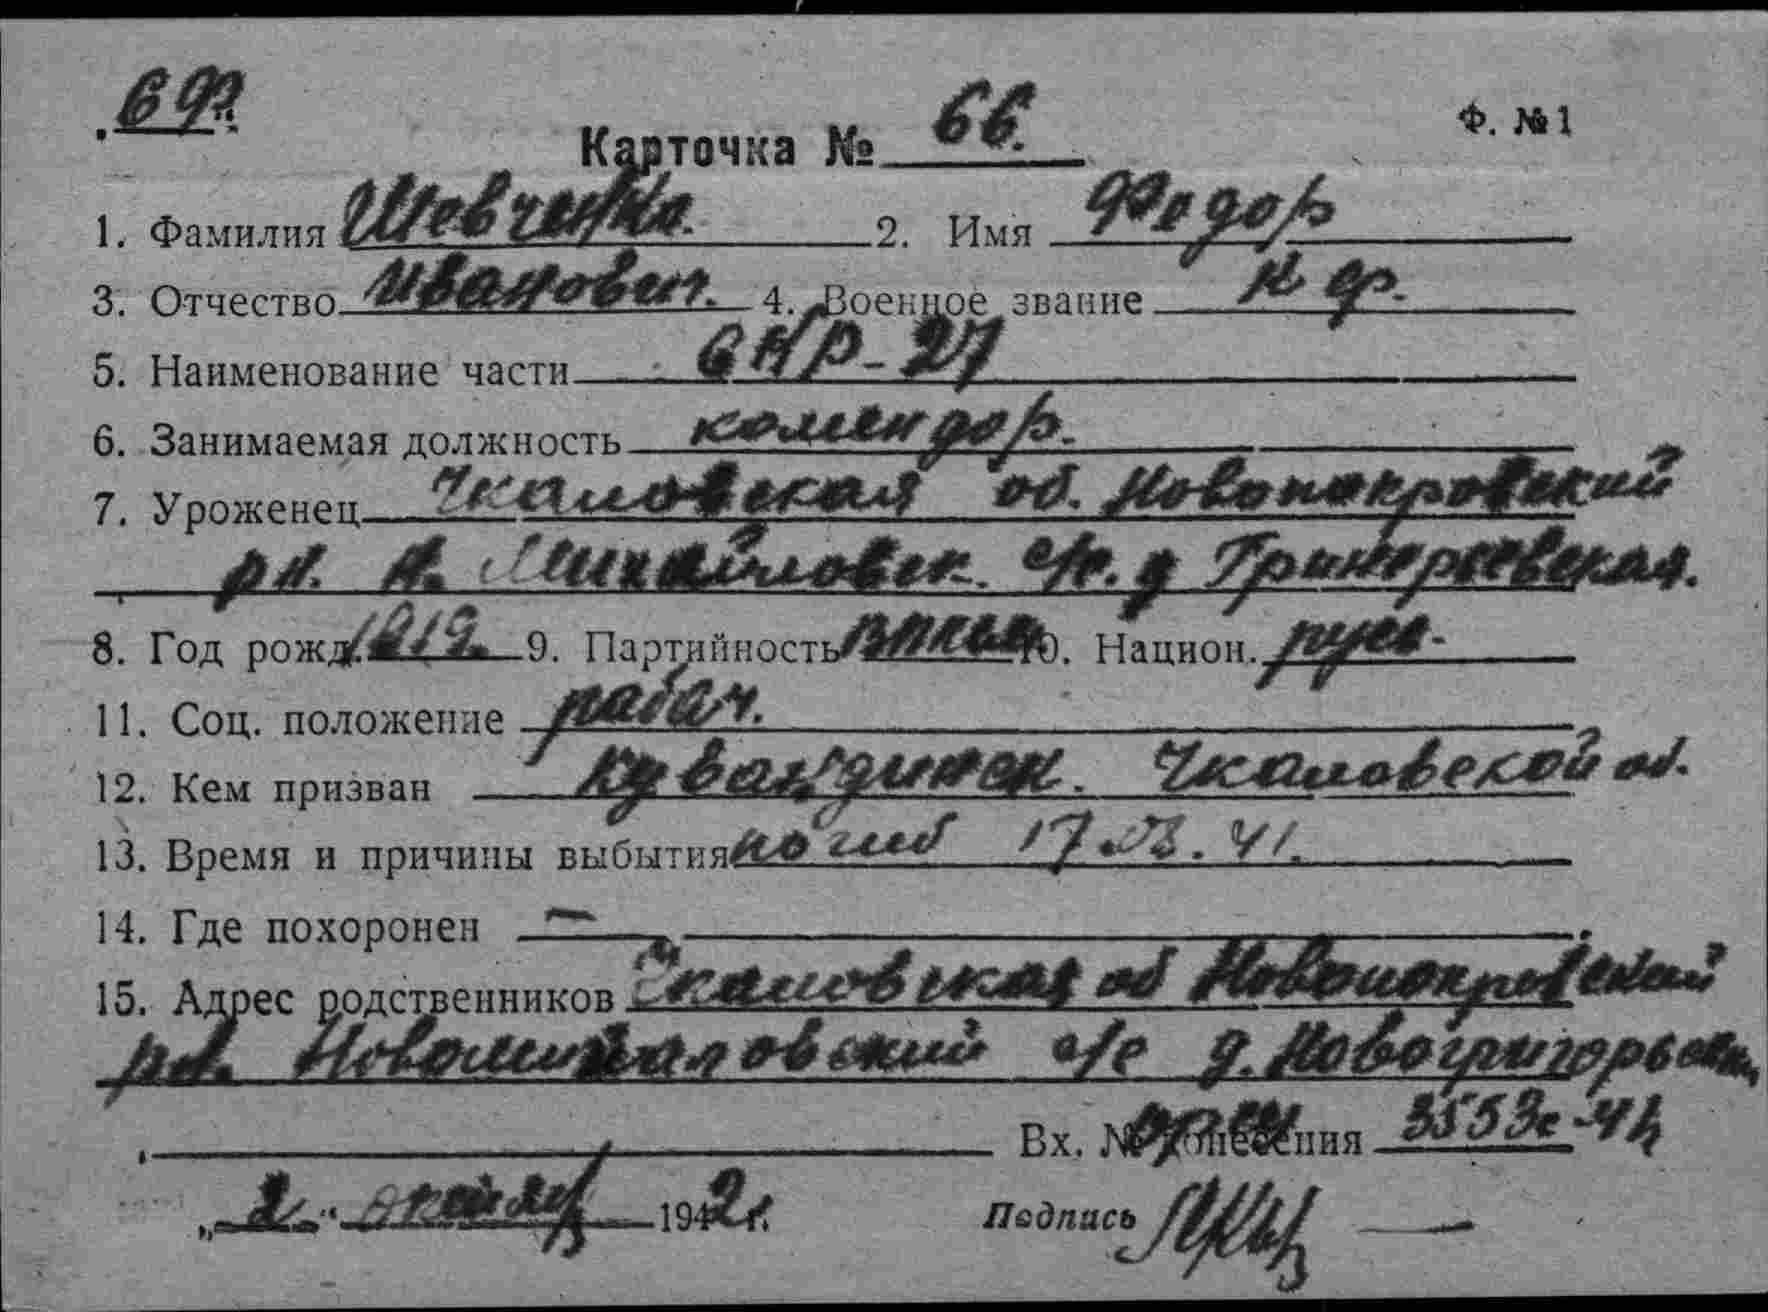 69
Карточка № 66. Ф. № 1
1. Фамилия Шевченко. 2. Имя Федор
3. Отчество Иванович. 4. Военное звание к ф.
5. Наименование части СКР-27
6. Занимаемая должность комендор.
7. Уроженец Чкаловская об. Новопокровский
рн. Н. Михайловск. с/с. д Григорьевская.
8. Год рожд. 1919. 9. Партийность ВЛКСМ 10. Национ. русс-
11. Соц. положение рабоч.
12. Кем призван Кувандинск. Чкаловской об.
13. Время и причины выбытия погиб 17.03.41.
14. Где похоронен —
15. Адрес родственников Чкаловская об Новопокровский
рн. Новомихайловский с/с д. Новогригорьевка
Вх. № донесения 3553с-41
„2“ октября 1942 г. Подпись